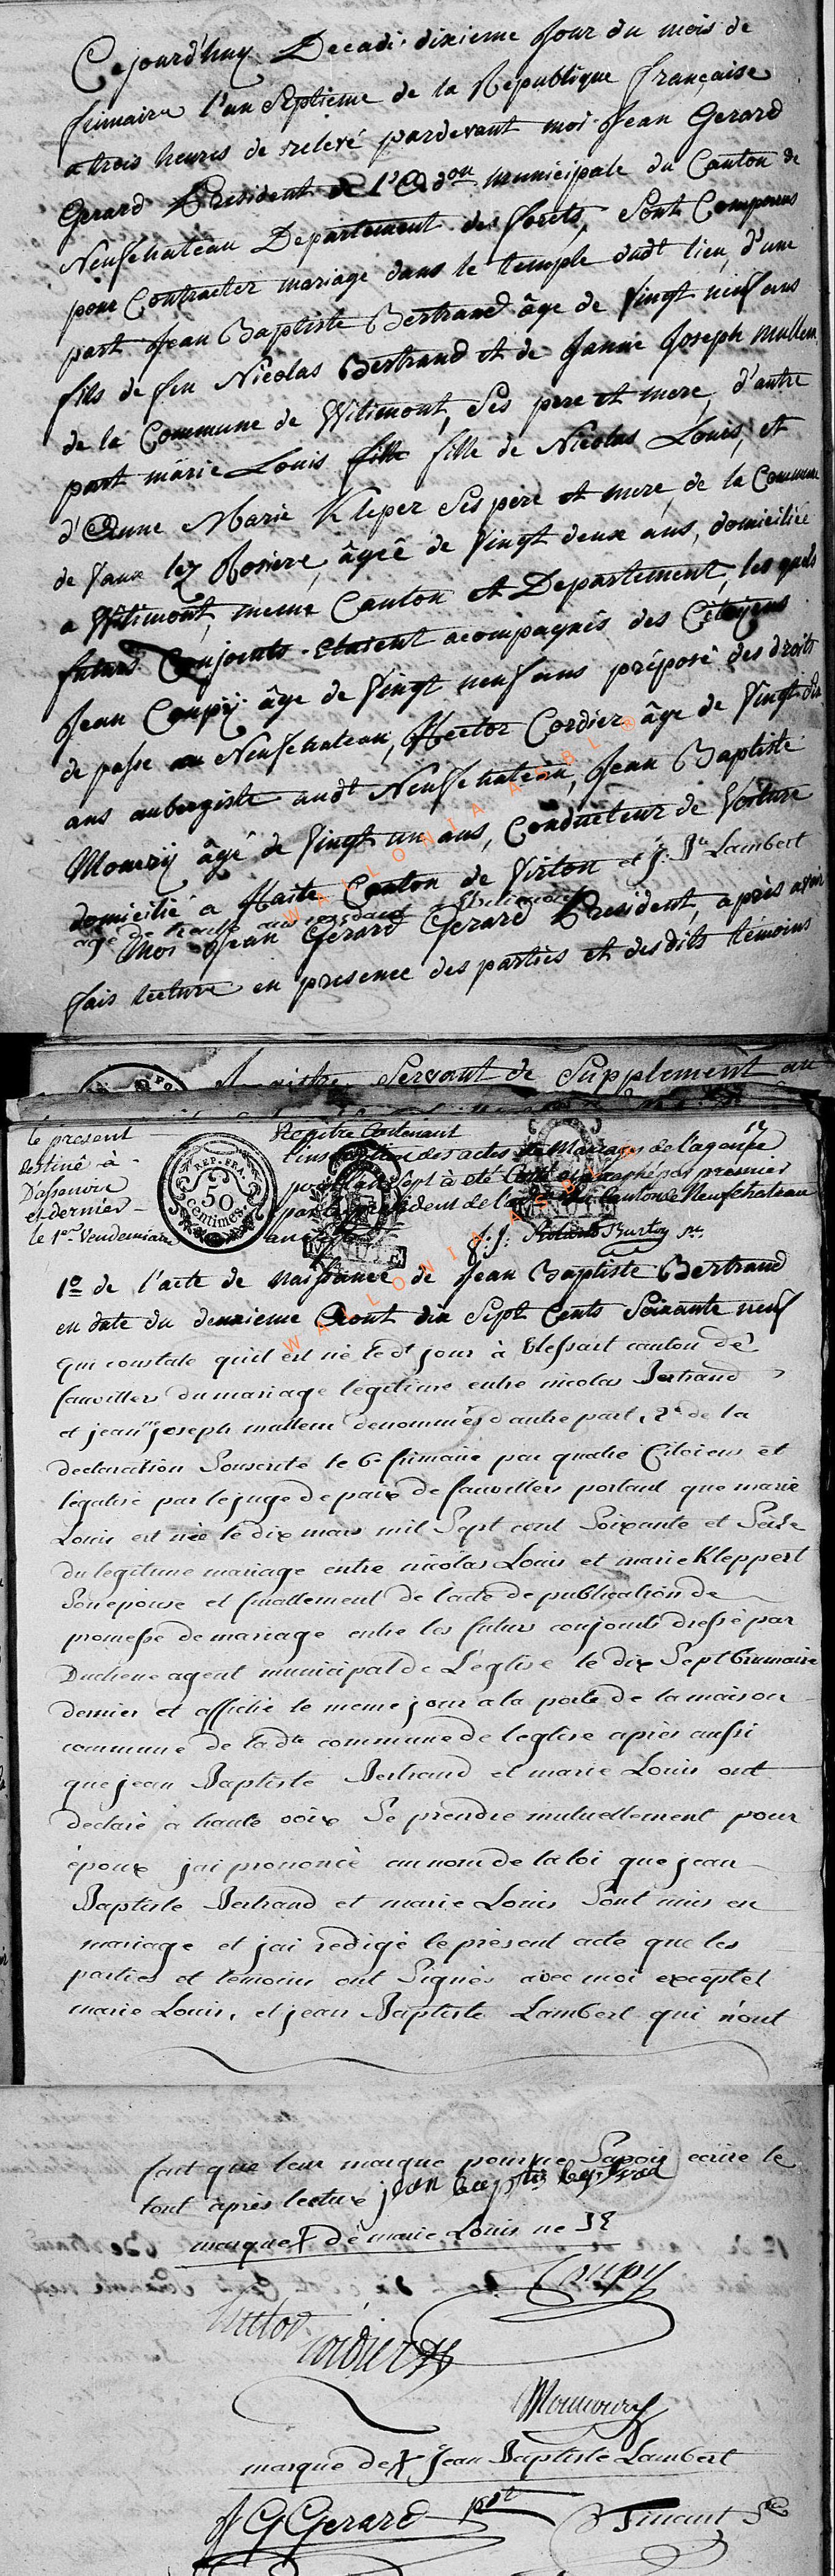 Cejourd'huy Decadi dixieme Jour du mois de
frimaire l'an Septieme de la République française
a trois heures de relevé pardevant moi Jean Gerard
Gerard President de l'Adon municipale du Canton de
Neufchateau Departement des forets, Sont Comparus
pour Contracter mariage dans le temple dudt lieu, d'une
part Jean Baptiste Bertrand âge de Vingt neuf ans
fils de feu Nicolas Bertrand et de Janne Joseph mullem
de la Commune de Witimont, Ses pere et mere, d'autre
part marie Louis fille fille de Nicolas Louis, et
d'Anne Marie Kleper Ses pere et mere, de la Commune
de Vaux lez Rosiere, âgée de Vingt deux ans, domiciliée
a Witimont, meme Canton et Departement, les quels
futurs Conjoints etaient acompagnés des Citoyens
Jean Coupÿ âge de Vingt neuf ans préposé des droits
de passe au Neufchateau, Hector Cordier âge de Vingt
ans aubergiste audt Neufchateau, Jean Baptiste
âgé de Vingt un ans, Conducteur de Voiture
domicilié a Canton de Virton et J: Bte Lambert
age de trente ans
Moi Jean Gerard Gerard President, après avoir
fais lecture en presence des parties et desdits témoins
WALLONIA ASBL ®
Servant de Supplement au
le present
destiné à
et dernier
le 1er Vendemiaire
Registre Contenant
l'inscription des actes de Mariages de l'agence
pour l'an Sept à été paraphé par premier
par president de Canton de Neufchateau
REP. FRA.
50
centimes
MINUTE
MINUTE
1o de l'acte de naissance de Jean Baptiste Bertrand
en date du deuxieme Aout dix Sept Cents Soixante neuf
qui constate qu'il est né ledt jour à Vlessart canton de
fauvillers du mariage légitime entre nicolas Bertrand
et jeanne joseph mullem denommés d'autre part, 2o de la
declaration Souscrite le 6e frimaire par quatre Citoiens et
légalisé par le juge de paix de fauvillers portant que marie
Louis est née le dix mars mil Sept cent Soixante et Seize
du legitime mariage entre nicolas Louis et marie Kleppert
Son epouse et finallement de l'acte de publication de
promesse de mariage entre les futurs conjoints dressé par
Duchene agent municipal de L'église le dix Sept brumaire
dernier et affiché le meme jour a la porte de la maison
commune de ladte commune de leglise après aussi
que jean Baptiste Bertrand et marie Louis ont
declaré à haute voix Se prendre mutuellement pour
époux jai prononcé au nom de la loi que jean
Baptiste Bertrand et marie Louis Sont unis en
mariage et jai redigé le présent acte que les
parties et temoins ont Signés avec moi exceptet
marie Louis, et jean Baptiste Lambert qui n'ont
fait que leur marque pour ne Savoir ecrire le
tout après lecture jean baptis bertrand
marque de marie Louis
Coupy
hector
cordier
marque de Jean Baptiste Lambert
JG Gerard pdt
Tinant Sre